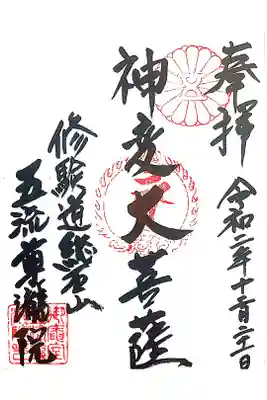 奉拝
令和二年十二月二十二日
神変大菩薩
修験道総本山
五流尊瀧院